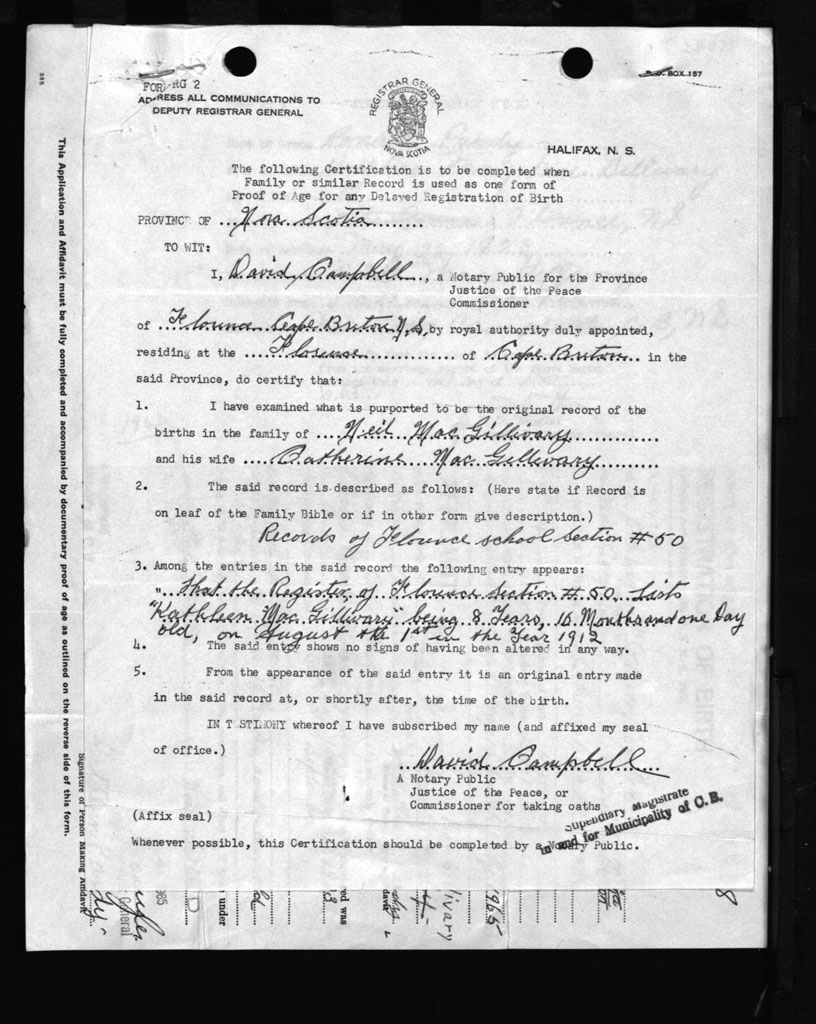 FORM RG 2
ADDRESS ALL COMMUNICATIONS TO
DEPUTY REGISTRAR GENERAL
REGISTRAR GENERAL
NOVA SCOTIA
BOX 157
HALIFAX, N. S.
The following Certification is to be completed when
Family or similar Record is used as one form of
Proof of Age for any Delayed Registration of Birth
PROVINCE OF ...Nova Scotia........
TO WIT:
I, David Campbell.., a Notary Public for the Province
Justice of the Peace
Commissioner
of ..Florence Cape Breton N.S, by royal authority duly appointed,
residing at the ....Florence............. of Cape Breton.. in the
said Province, do certify that:
1. I have examined what is purported to be the original record of the
births in the family of ....Neil Mac Gillivary..............
and his wife ....Catherine Mac Gillivary.........
2. The said record is described as follows: (Here state if Record is
on leaf of the Family Bible or if in other form give description.)
Records of Florence school Section # 50
3. Among the entries in said record the following entry appears:
".. that the Register of Florence Section # 50 Lists
"Kathleen Mac Gillivary" being 8 Years, 10 Months and one Day
old, on August the 1st in the Year 1912
4. The said entry shows no signs of having been altered in any way.
5. From the appearance of the said entry it is an original entry made
in the said record at, or shortly after, the time of the birth.
IN TESTIMONY whereof I have subscribed my name (and affixed my seal
of office.)
...David Campbell...
A Notary Public
Justice of the Peace, or
Commissioner for taking oaths
Stipendiary Magistrate
in and for Municipality of C. B.
(Affix seal)
Whenever possible, this Certification should be completed by a Notary Public.
This Application and Affidavit must be fully completed and accompanied by documentary proof of age as outlined on the reverse side of this form.
Signature of Person Making Affidavit
General
965
under
was
livary
1965
8